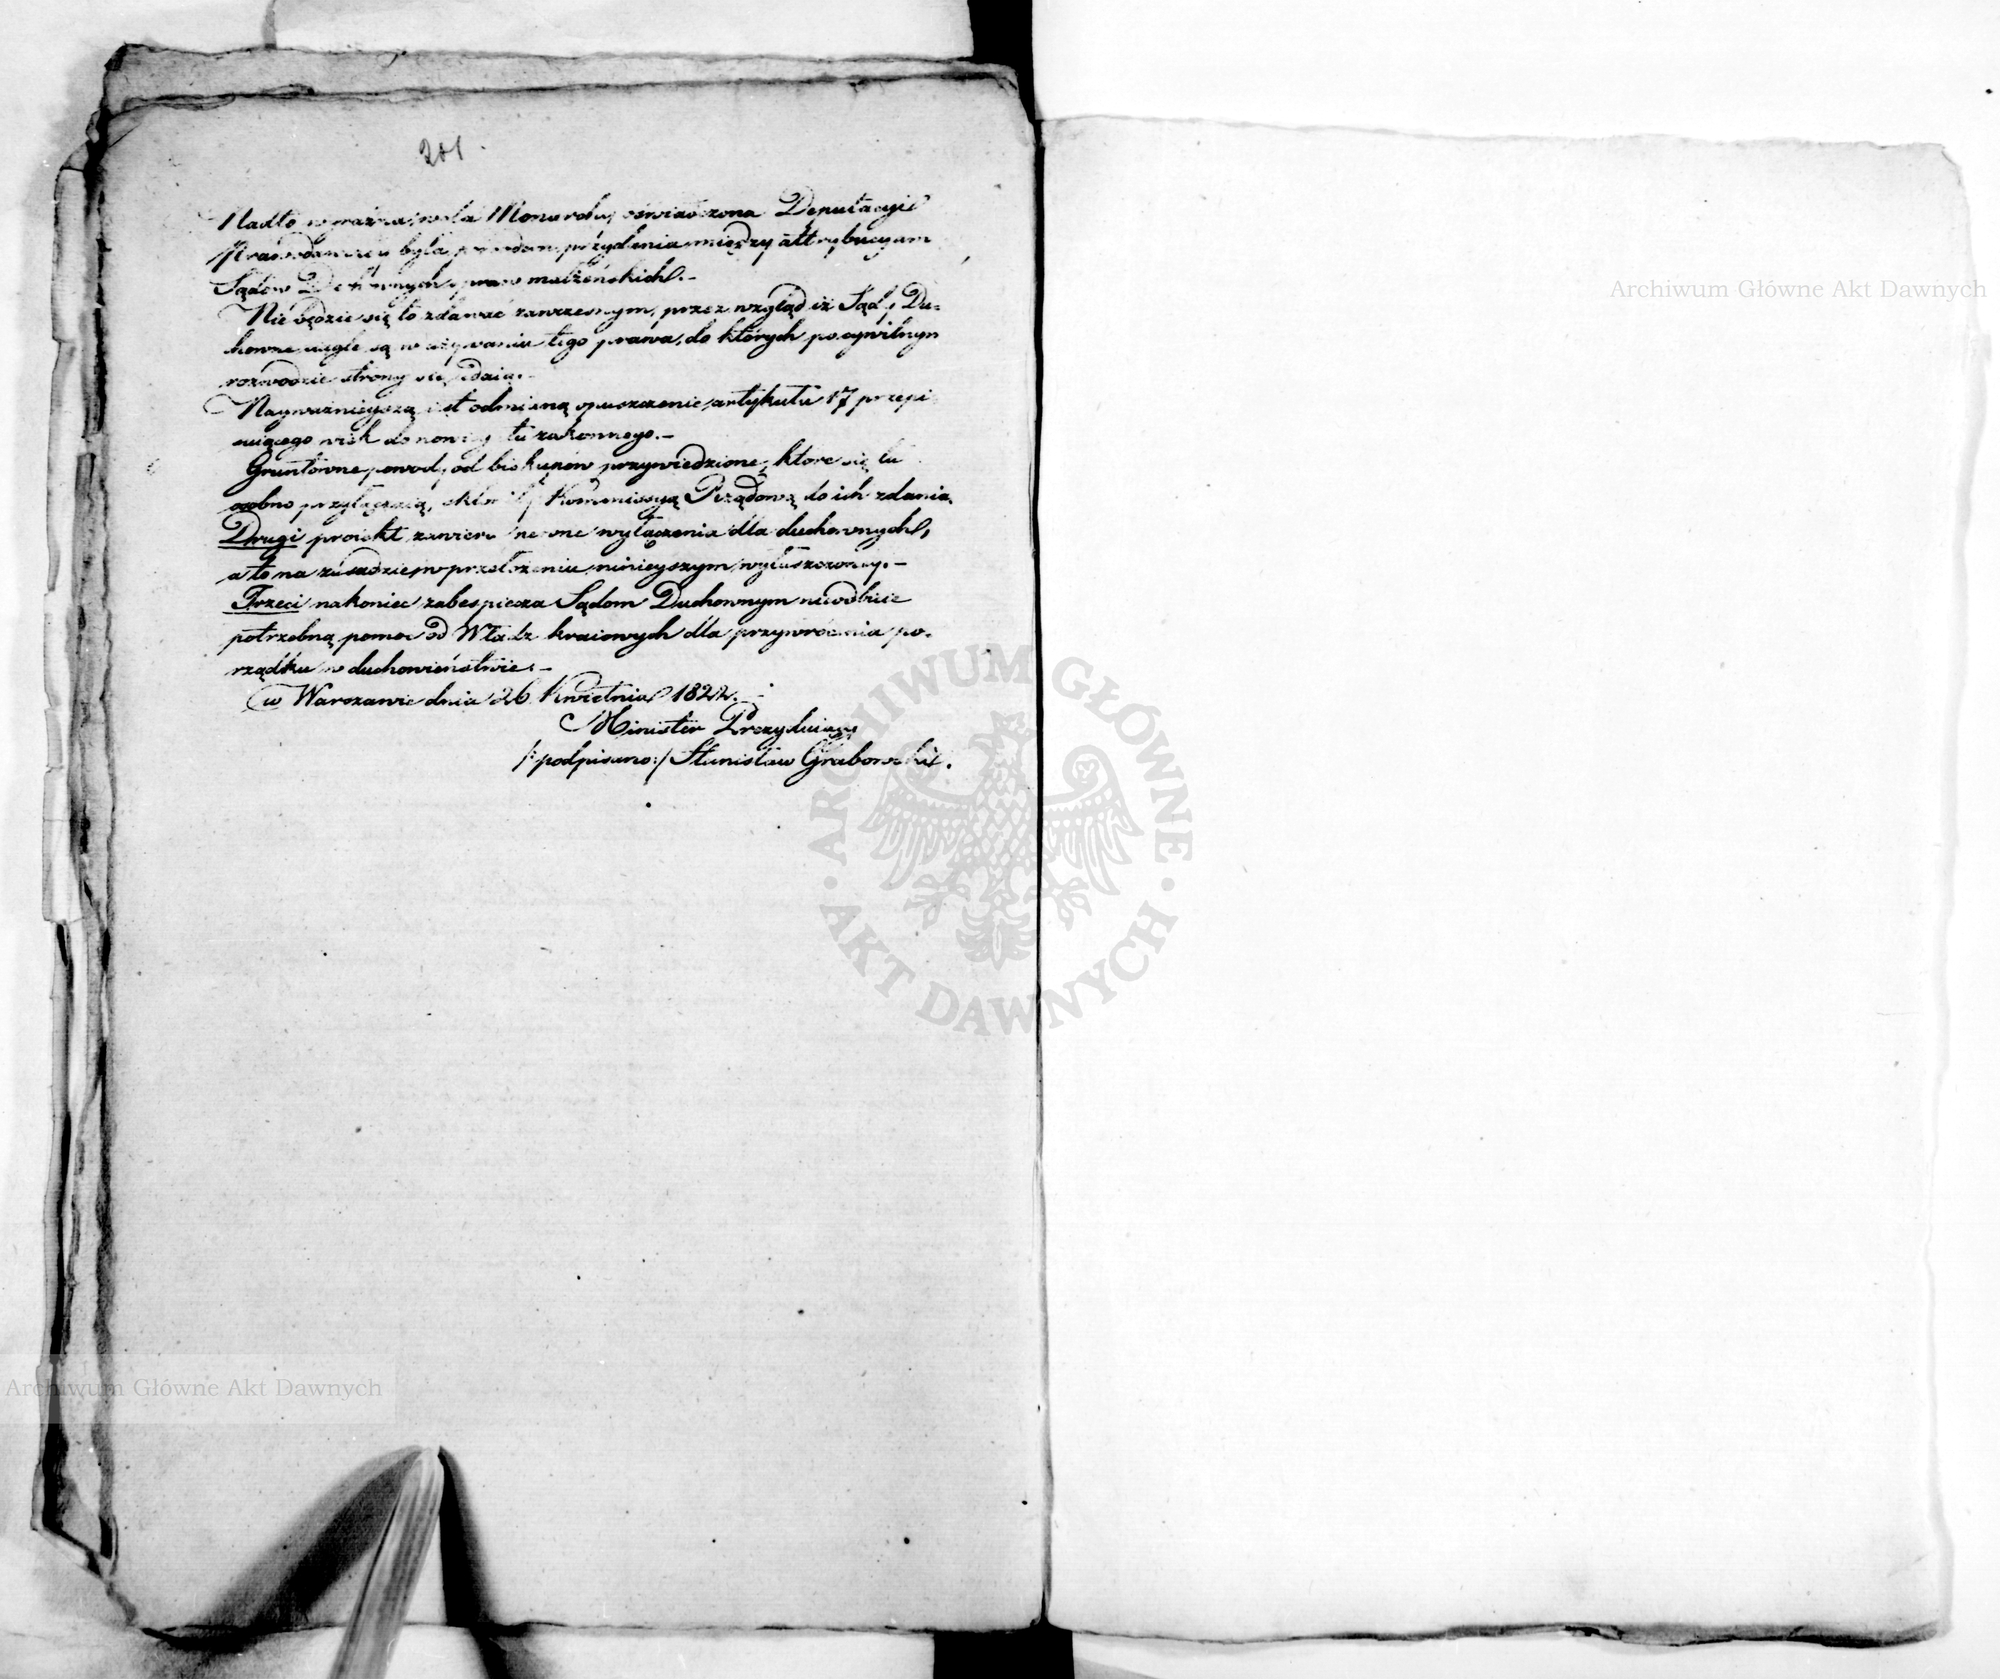 201.
Nadto wyraźna wola Monarchy oświadczona Deputacyi
Prawodawczey była powodem przydania między attrybucyam
Sądów Duchownych spraw małżeńskich.-
Nie będzie się to zdawać zawczesnym, przez wzgląd iż Sądy Du-
howne ciągle są w używaniu tego prawa, do których po cywilnym
rozwodzie strony się udaią.-
Nayważnieyszą iest odmianą opuszczenie artykułu 17 przepi
suiącego wiek do nowicyatu zakonnego.-
Gruntowne powody od biskupów przywiedzione, które się tu
osobno przyłączaią, skłoniły Kommissyą Rządową do ich zdania.
Drugi proiekt zawiera pewne wyłączenia dla duchownych,
a to na zasadzie w przełożeniu ninieyszym wyłuszczoney.-
Trzeci nakoniec zabespiecza Sądom Duchownym nieodbicie
potrzebną pomoc od Władz kraiowych dla przywrócenia po-
rządku w duchowieństwie.-
w Warszawie dnia 26 Kwietnia 1822.-
Minister Prezyduiący
/:podpisano:/ Stanisław Grabowski.
Archiwum Główne Akt Dawnych
ARCHIWUM GŁÓWNE
AKT DAWNYCH
Archiwum Główne Akt Dawnych